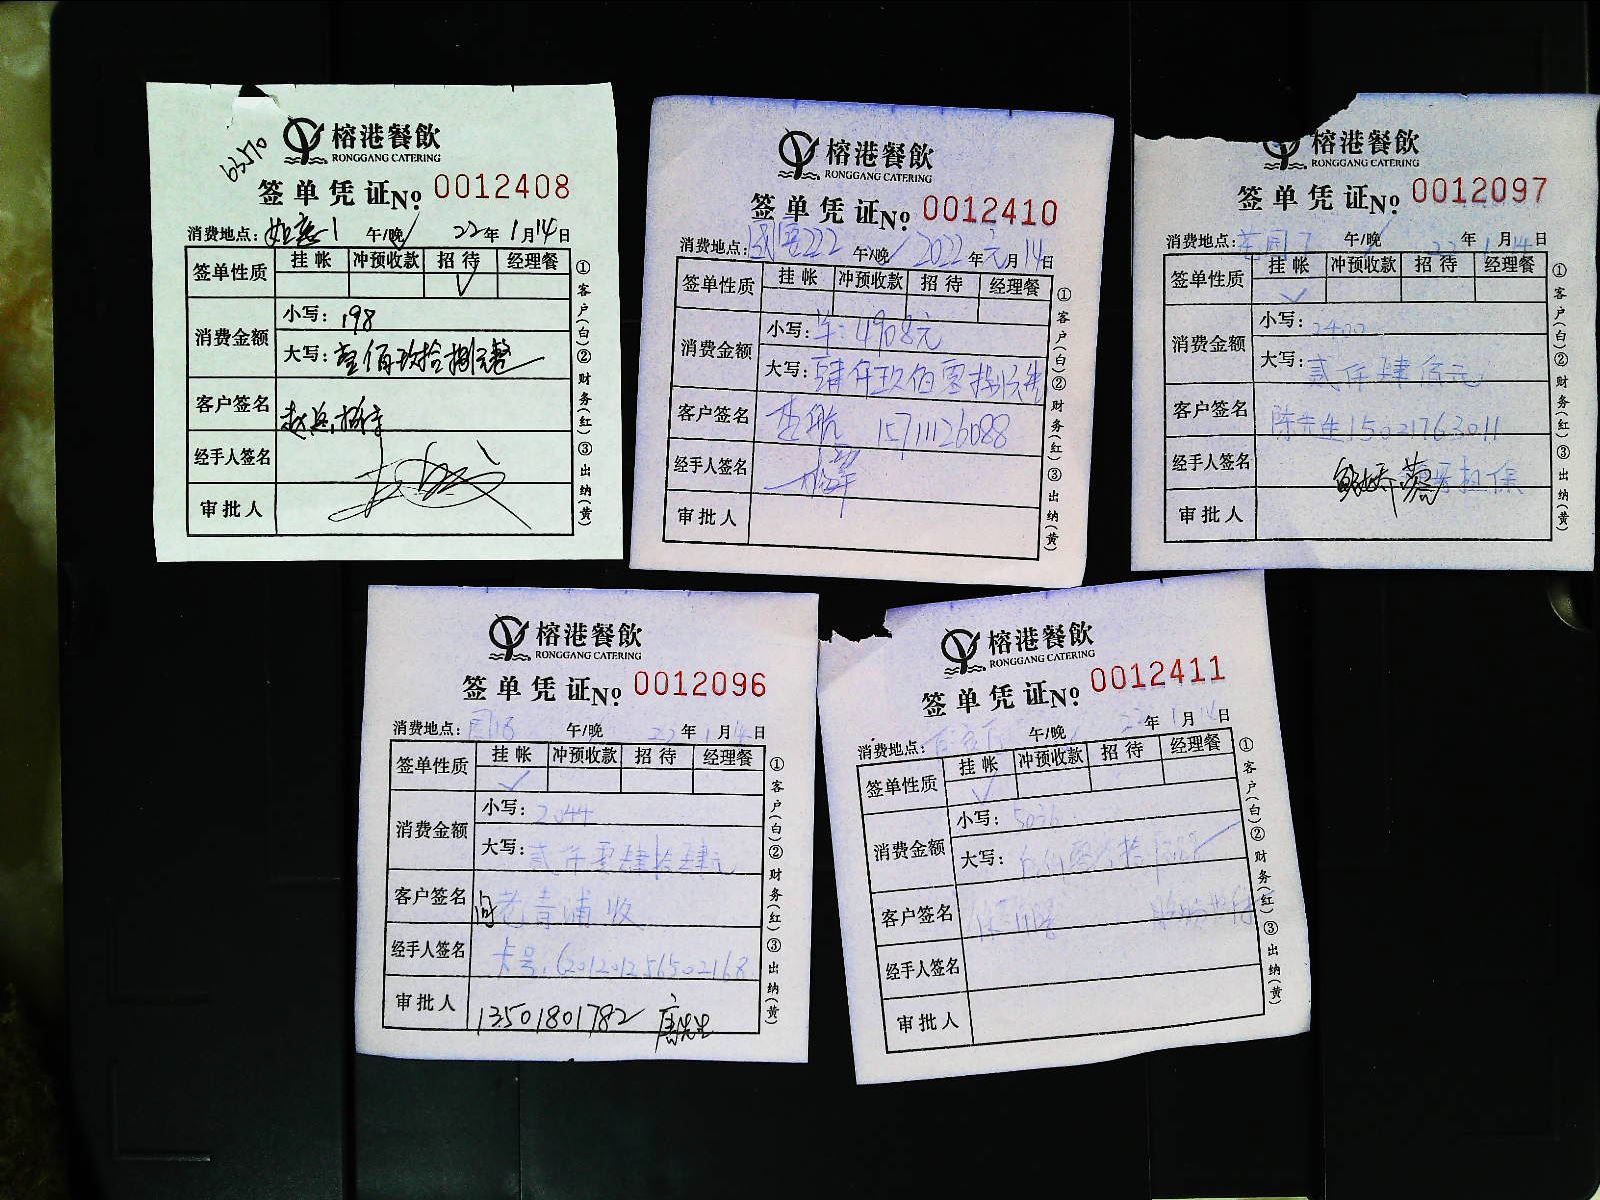 63570
榕港餐飲
RONGGANG CATERING
签单凭证 No 0012408
消费地点: 如意1 午/晚 22年1月14日
签单性质 挂帐 冲预收款 招待 经理餐
√
消费金额 小写: 198
大写: 壹佰玖拾捌元整
客户签名
经手人签名
审批人
①客户(白)②财务(红)③出纳(黄)
榕港餐飲
RONGGANG CATERING
签单凭证 No 0012410
消费地点: 222 午/晚 2022年元月14日
签单性质 挂帐 冲预收款 招待 经理餐
消费金额 小写: 4908元
大写: 肆仟玖佰零捌元
客户签名 15711126088
经手人签名
审批人
①客户(白)②财务(红)③出纳(黄)
榕港餐飲
RONGGANG CATERING
签单凭证 No 0012097
消费地点: 午/晚 22年1月14日
签单性质 挂帐 冲预收款 招待 经理餐
√
消费金额 小写: 2400
大写: 贰仟肆佰元
客户签名 陈先生15021763011
经手人签名 担保
审批人
①客户(白)②财务(红)③出纳(黄)
榕港餐飲
RONGGANG CATERING
签单凭证 No 0012096
消费地点: 午/晚 22年1月14日
签单性质 挂帐 冲预收款 招待 经理餐
√
消费金额 小写: 2044
大写: 贰仟零肆拾肆元
客户签名 青浦收
经手人签名 卡号:
审批人 13501801782 唐先生
①客户(白)②财务(红)③出纳(黄)
榕港餐飲
RONGGANG CATERING
签单凭证 No 0012411
消费地点: 午/晚 22年1月14日
签单性质 挂帐 冲预收款 招待 经理餐
√
消费金额 小写:
大写:
客户签名
经手人签名
审批人
①客户(白)②财务(红)③出纳(黄)